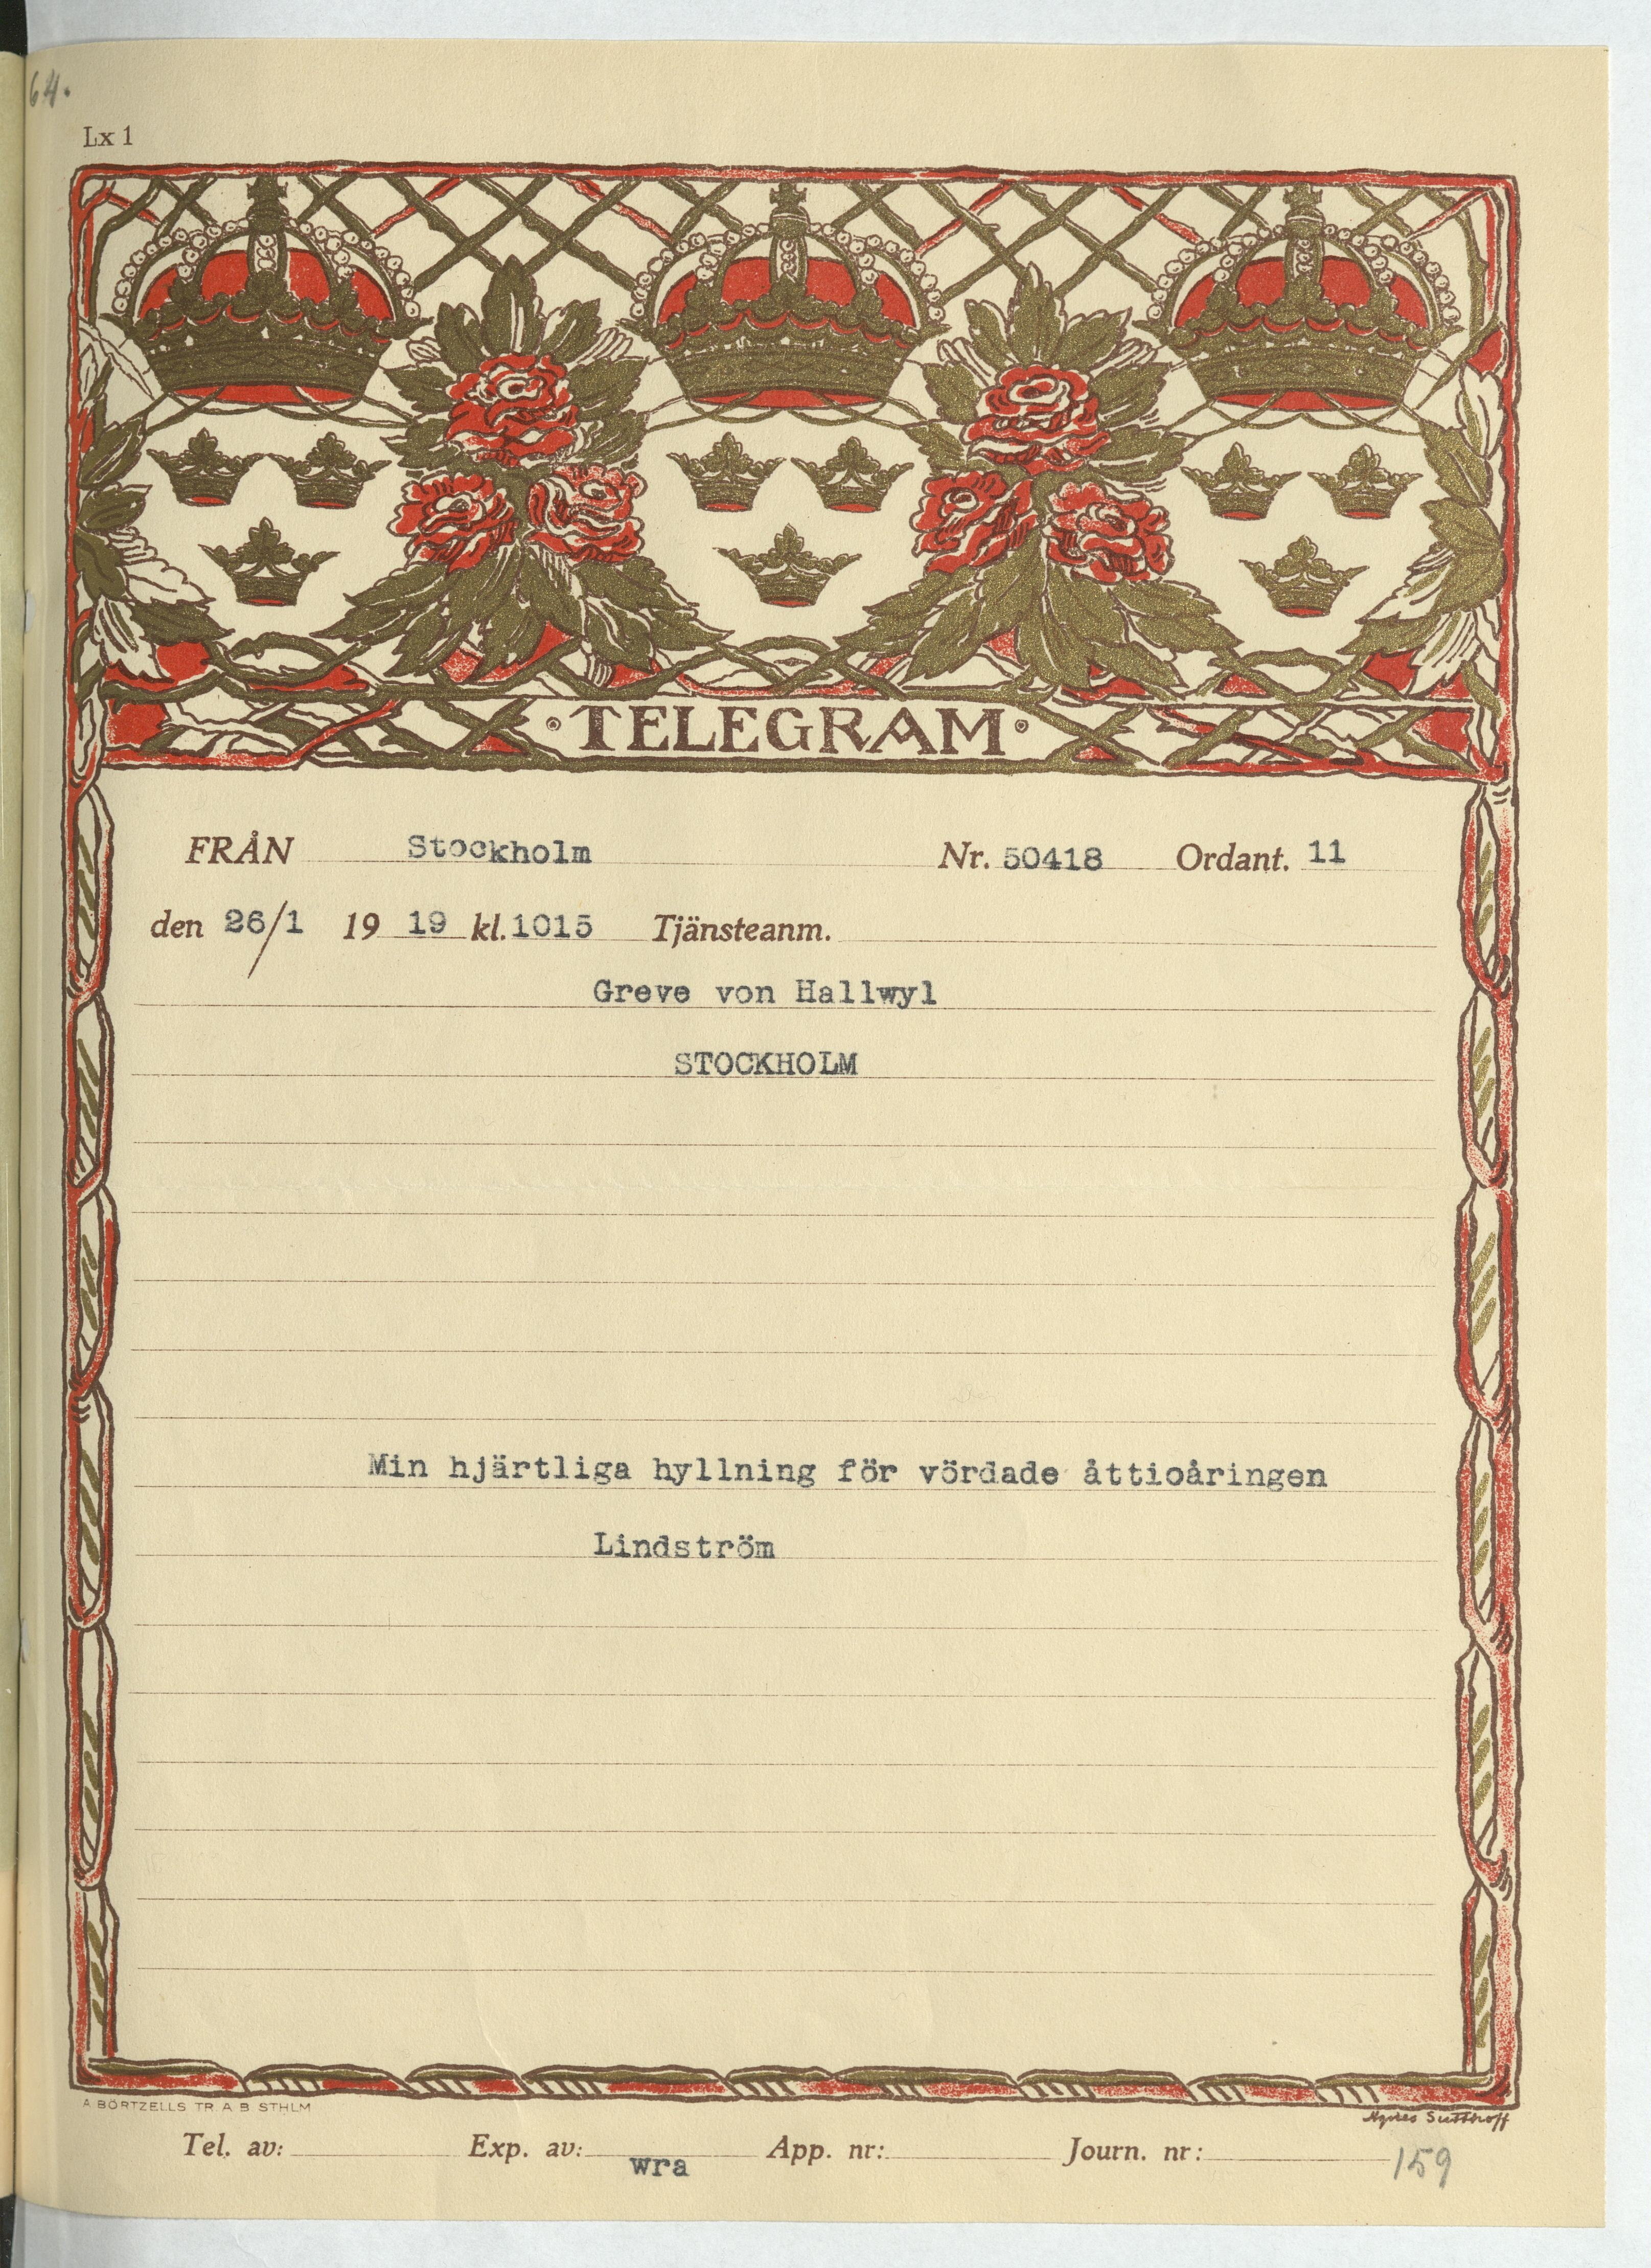 64.
Lx 1
·TELEGRAM·
FRÅN Stockholm Nr. 50418 Ordant. 11
den 26/1 19 19 kl. 1015 Tjänsteanm.
Greve von Hallwyl
STOCKHOLM
Min hjärtliga hyllning för vördade åttioåringen
Lindström
A. BÖRTZELLS TR. A. B. STHLM
Agnes
Tel. av: Exp. av: wra App. nr: Journ. nr: 159